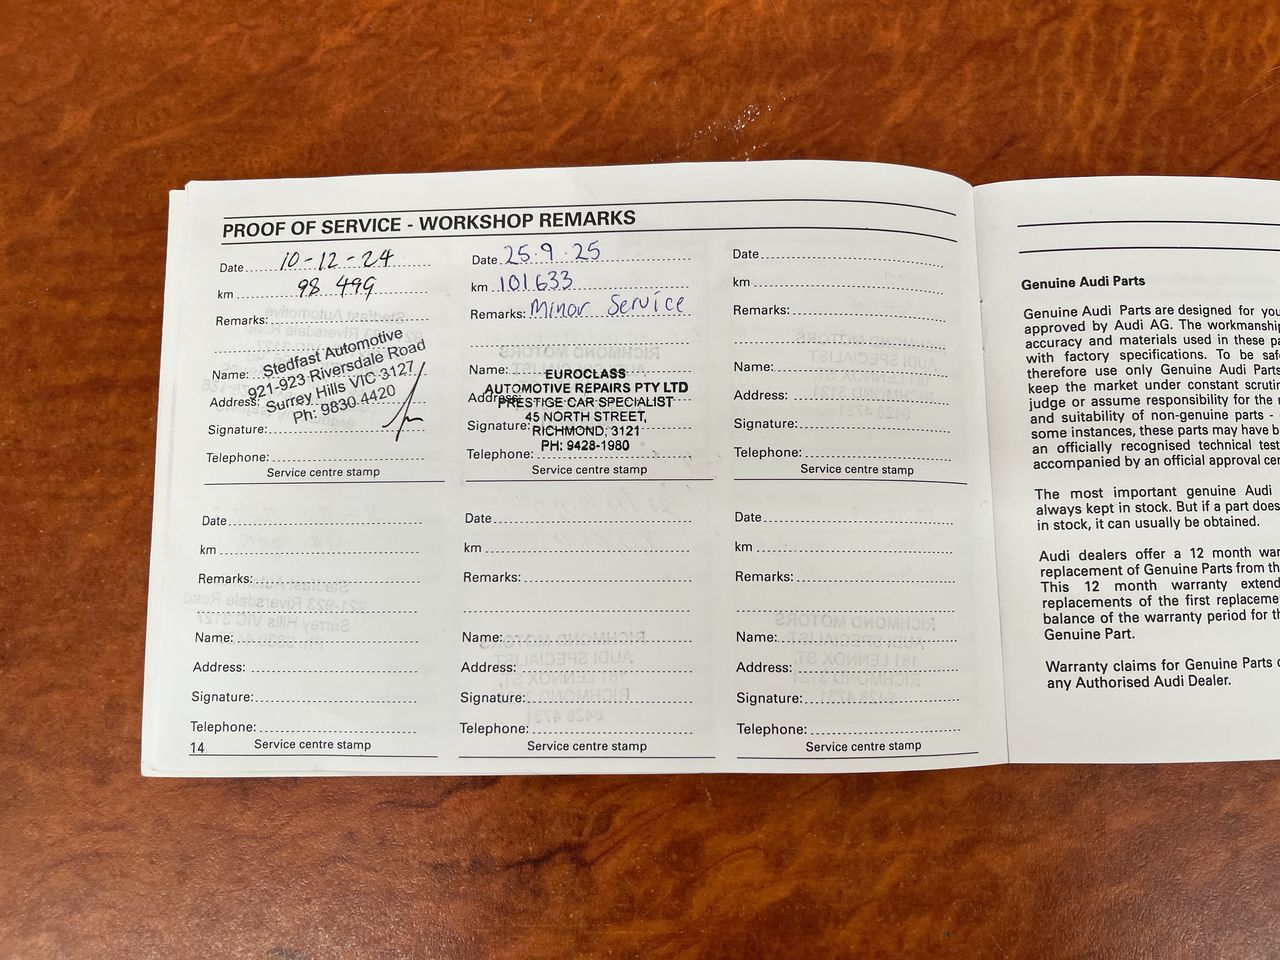 PROOF OF SERVICE - WORKSHOP REMARKS
Date 10-12-24
km 98 499
Remarks:
Name:
Address:
Signature:
Telephone:
Stedfast Automotive
921-923 Riversdale Road
Surrey Hills VIC 3127
Ph: 9830 4420
Service centre stamp
Date 25.9.25
km 101633
Remarks: Minor Service
Name:
Address:
Signature:
Telephone:
EUROCLASS
AUTOMOTIVE REPAIRS PTY LTD
PRESTIGE CAR SPECIALIST
45 NORTH STREET,
RICHMOND, 3121
PH: 9428-1980
Service centre stamp
Date
km
Remarks:
Name:
Address:
Signature:
Telephone:
Service centre stamp
Date
km
Remarks:
Name:
Address:
Signature:
Telephone:
Service centre stamp
Date
km
Remarks:
Name:
Address:
Signature:
Telephone:
Service centre stamp
Date
km
Remarks:
Name:
Address:
Signature:
Telephone:
Service centre stamp
14
Genuine Audi Parts
Genuine Audi Parts are designed for
approved by Audi AG. The
accuracy and materials used in these
with factory specifications. To be
therefore use only Genuine Audi Parts
keep the market under constant
judge or assume responsibility for the
and suitability of non-genuine parts -
some instances, these parts may have
an officially recognised technical
accompanied by an official approval
The most important genuine Audi
always kept in stock. But if a part
in stock, it can usually be obtained.
Audi dealers offer a 12 month
replacement of Genuine Parts from
This 12 month warranty
replacements of the first
balance of the warranty period for
Genuine Part.
Warranty claims for Genuine Parts
any Authorised Audi Dealer.